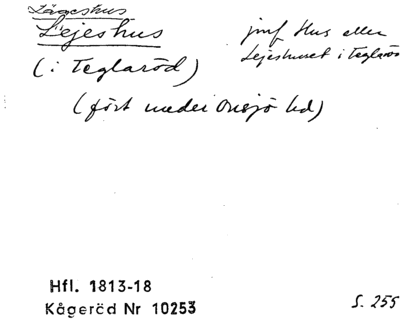 Lägeshus
Lejeshus
(i Teglaröd)
jmf Hus eller
Lejeshuset i Teglaröd
(fört under Onsjö hd)
Hfl. 1813-18
Kågeröd Nr 10253
S. 255